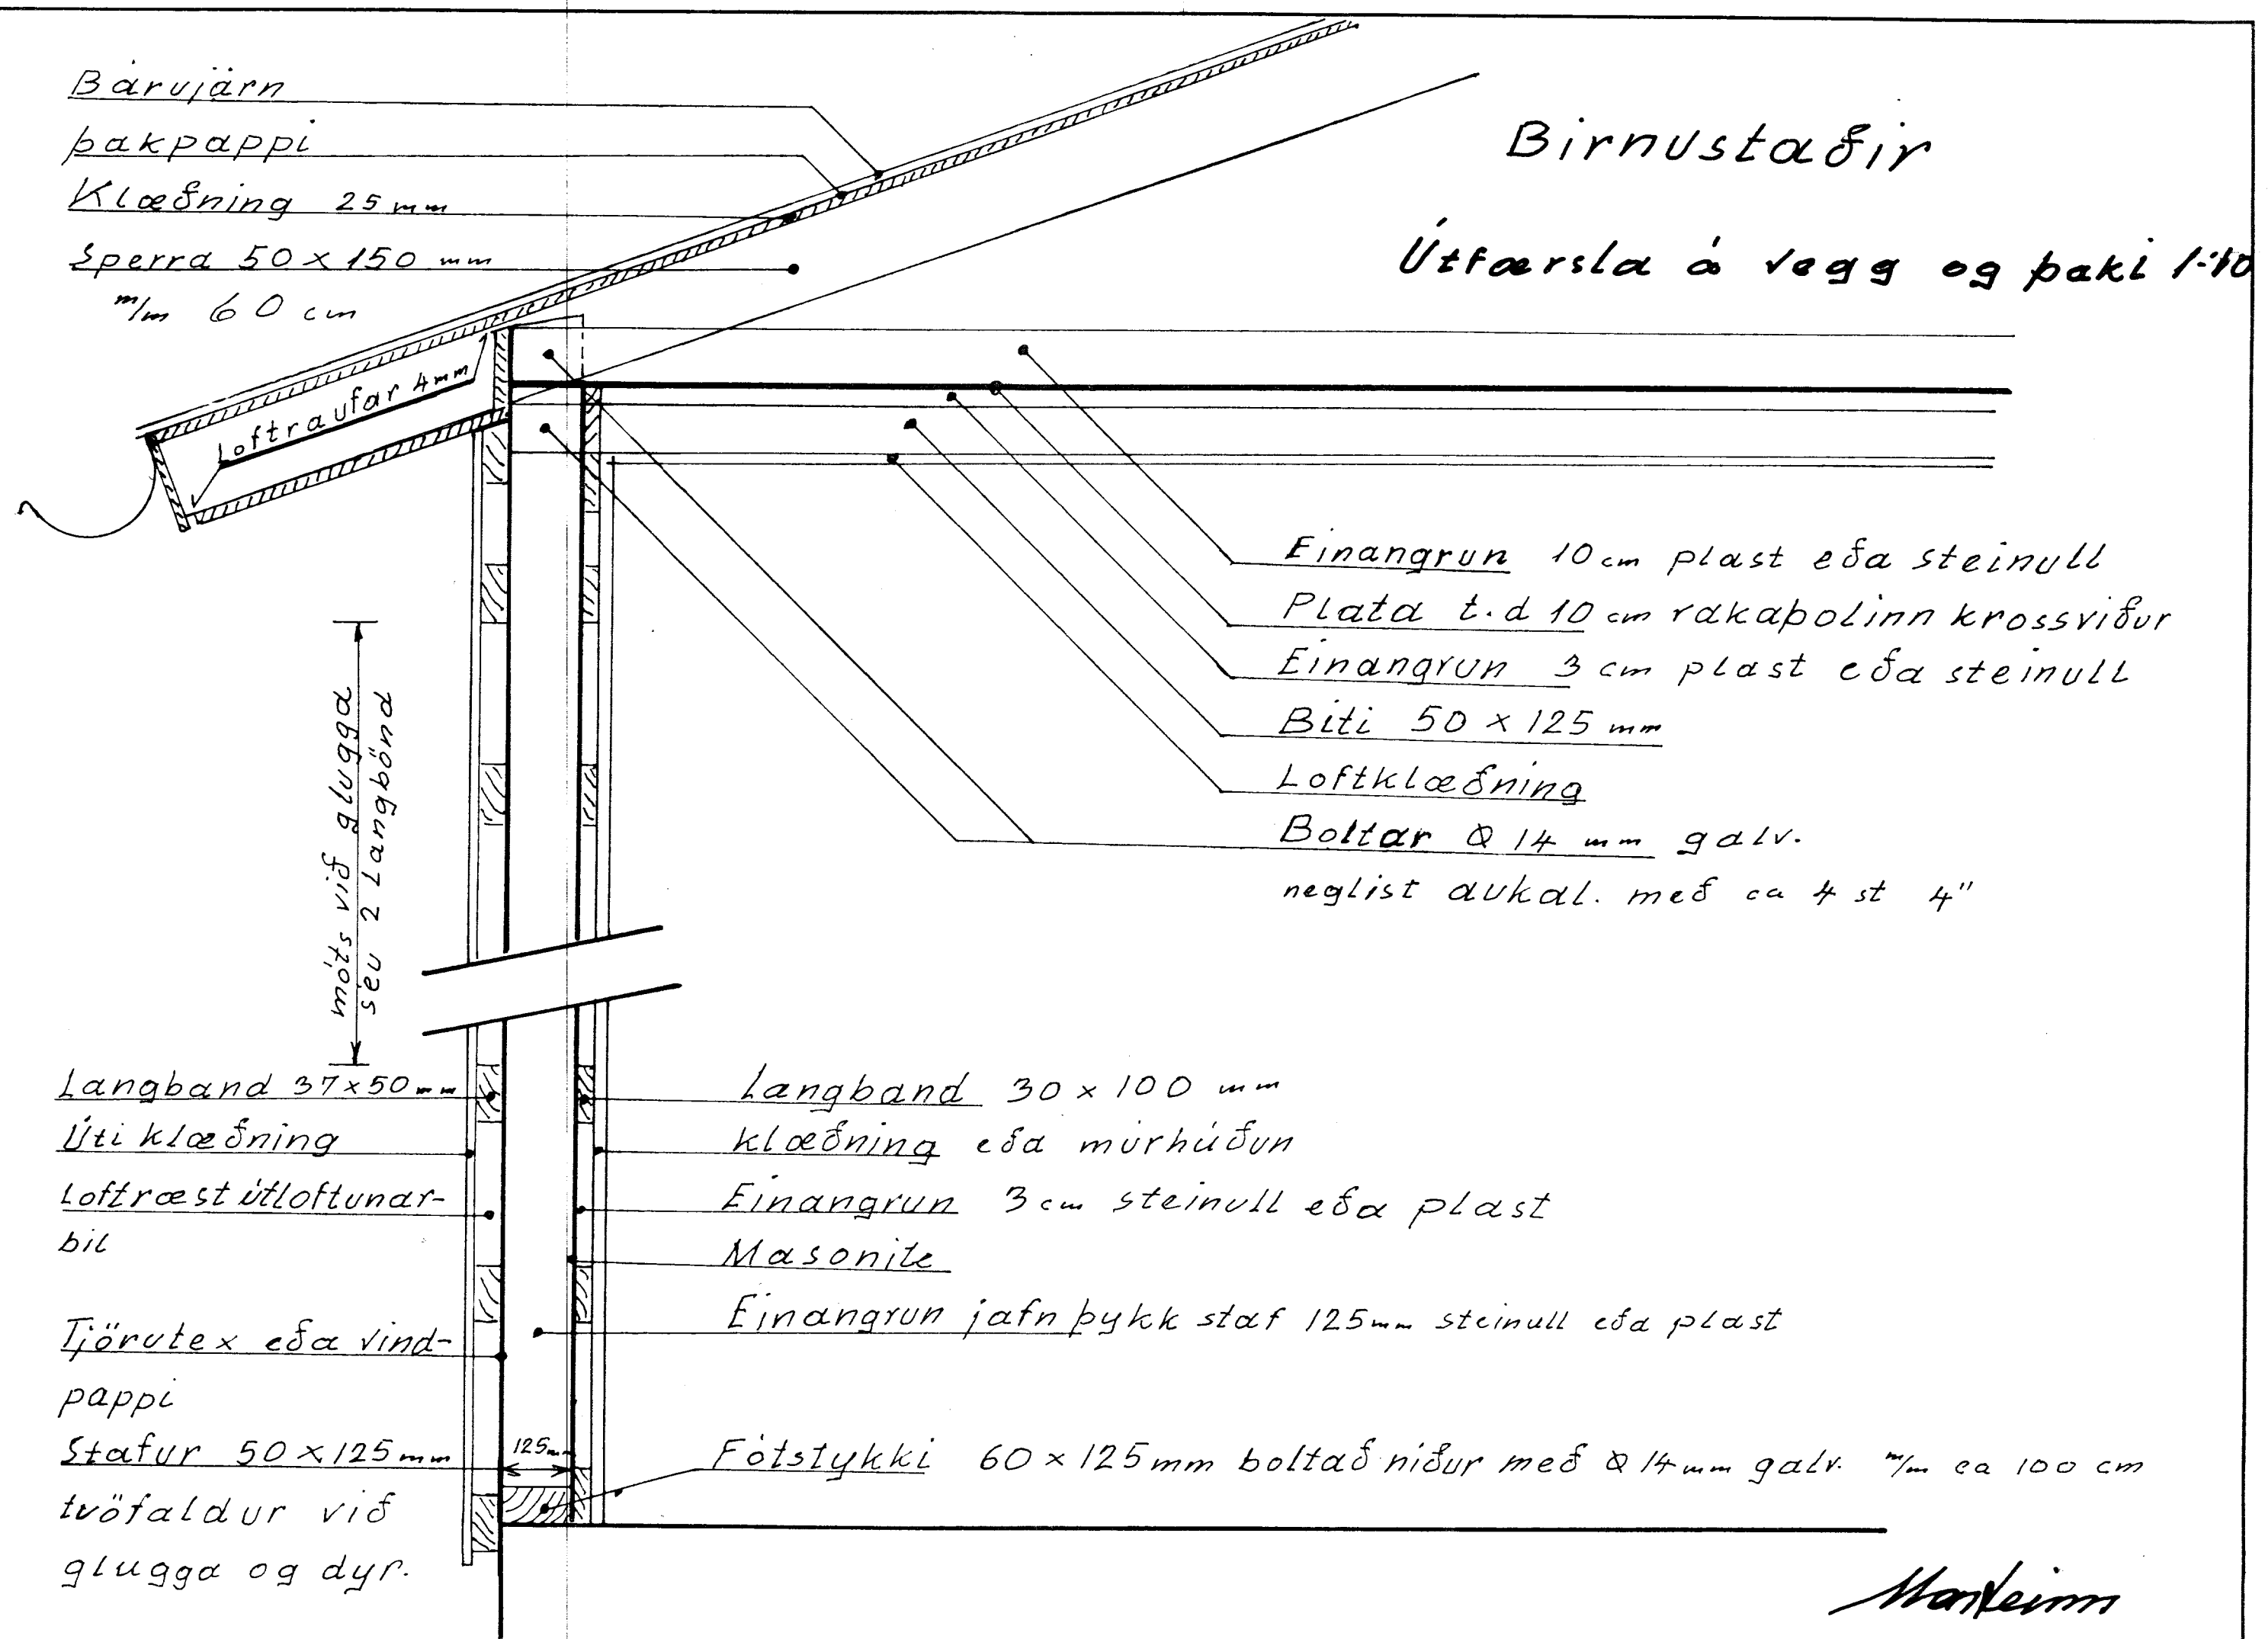 Bárujárn
þakpappi
Klæðning 25 mm
Sperra 50 x 150 mm
m/m 60 cm
Birnustaðir
Útfærsla á vegg og þaki 1:10
Loftraufar 4mm
Einangrun 10 cm plast eða steinull
Plata t.d 10 cm rakaþolinn krossviður
Einangrun 3 cm plast eða steinull
Biti 50 x 125 mm
Loftklæðning
Boltar Ø 14 mm galv.
neglist aukal. með ca 4 st 4"
móts við glugga
séu 2 Langbönd
Langband 37x50mm
Úti klæðning
Loftræst útloftunar-
bil
Tjörutex eða vind-
pappi
Stafur 50 x 125 mm
tvöfaldur við
glugga og dyr.
125mm
Langband 30 x 100 mm
klæðning eða múrhúðun
Einangrun 3 cm steinull eða plast
Masonite
Einangrun jafn þykk staf 125mm steinull eða plast
Fótstykki 60 x 125mm boltað niður með Ø 14mm galv. m/m ca 100 cm
Marteinn